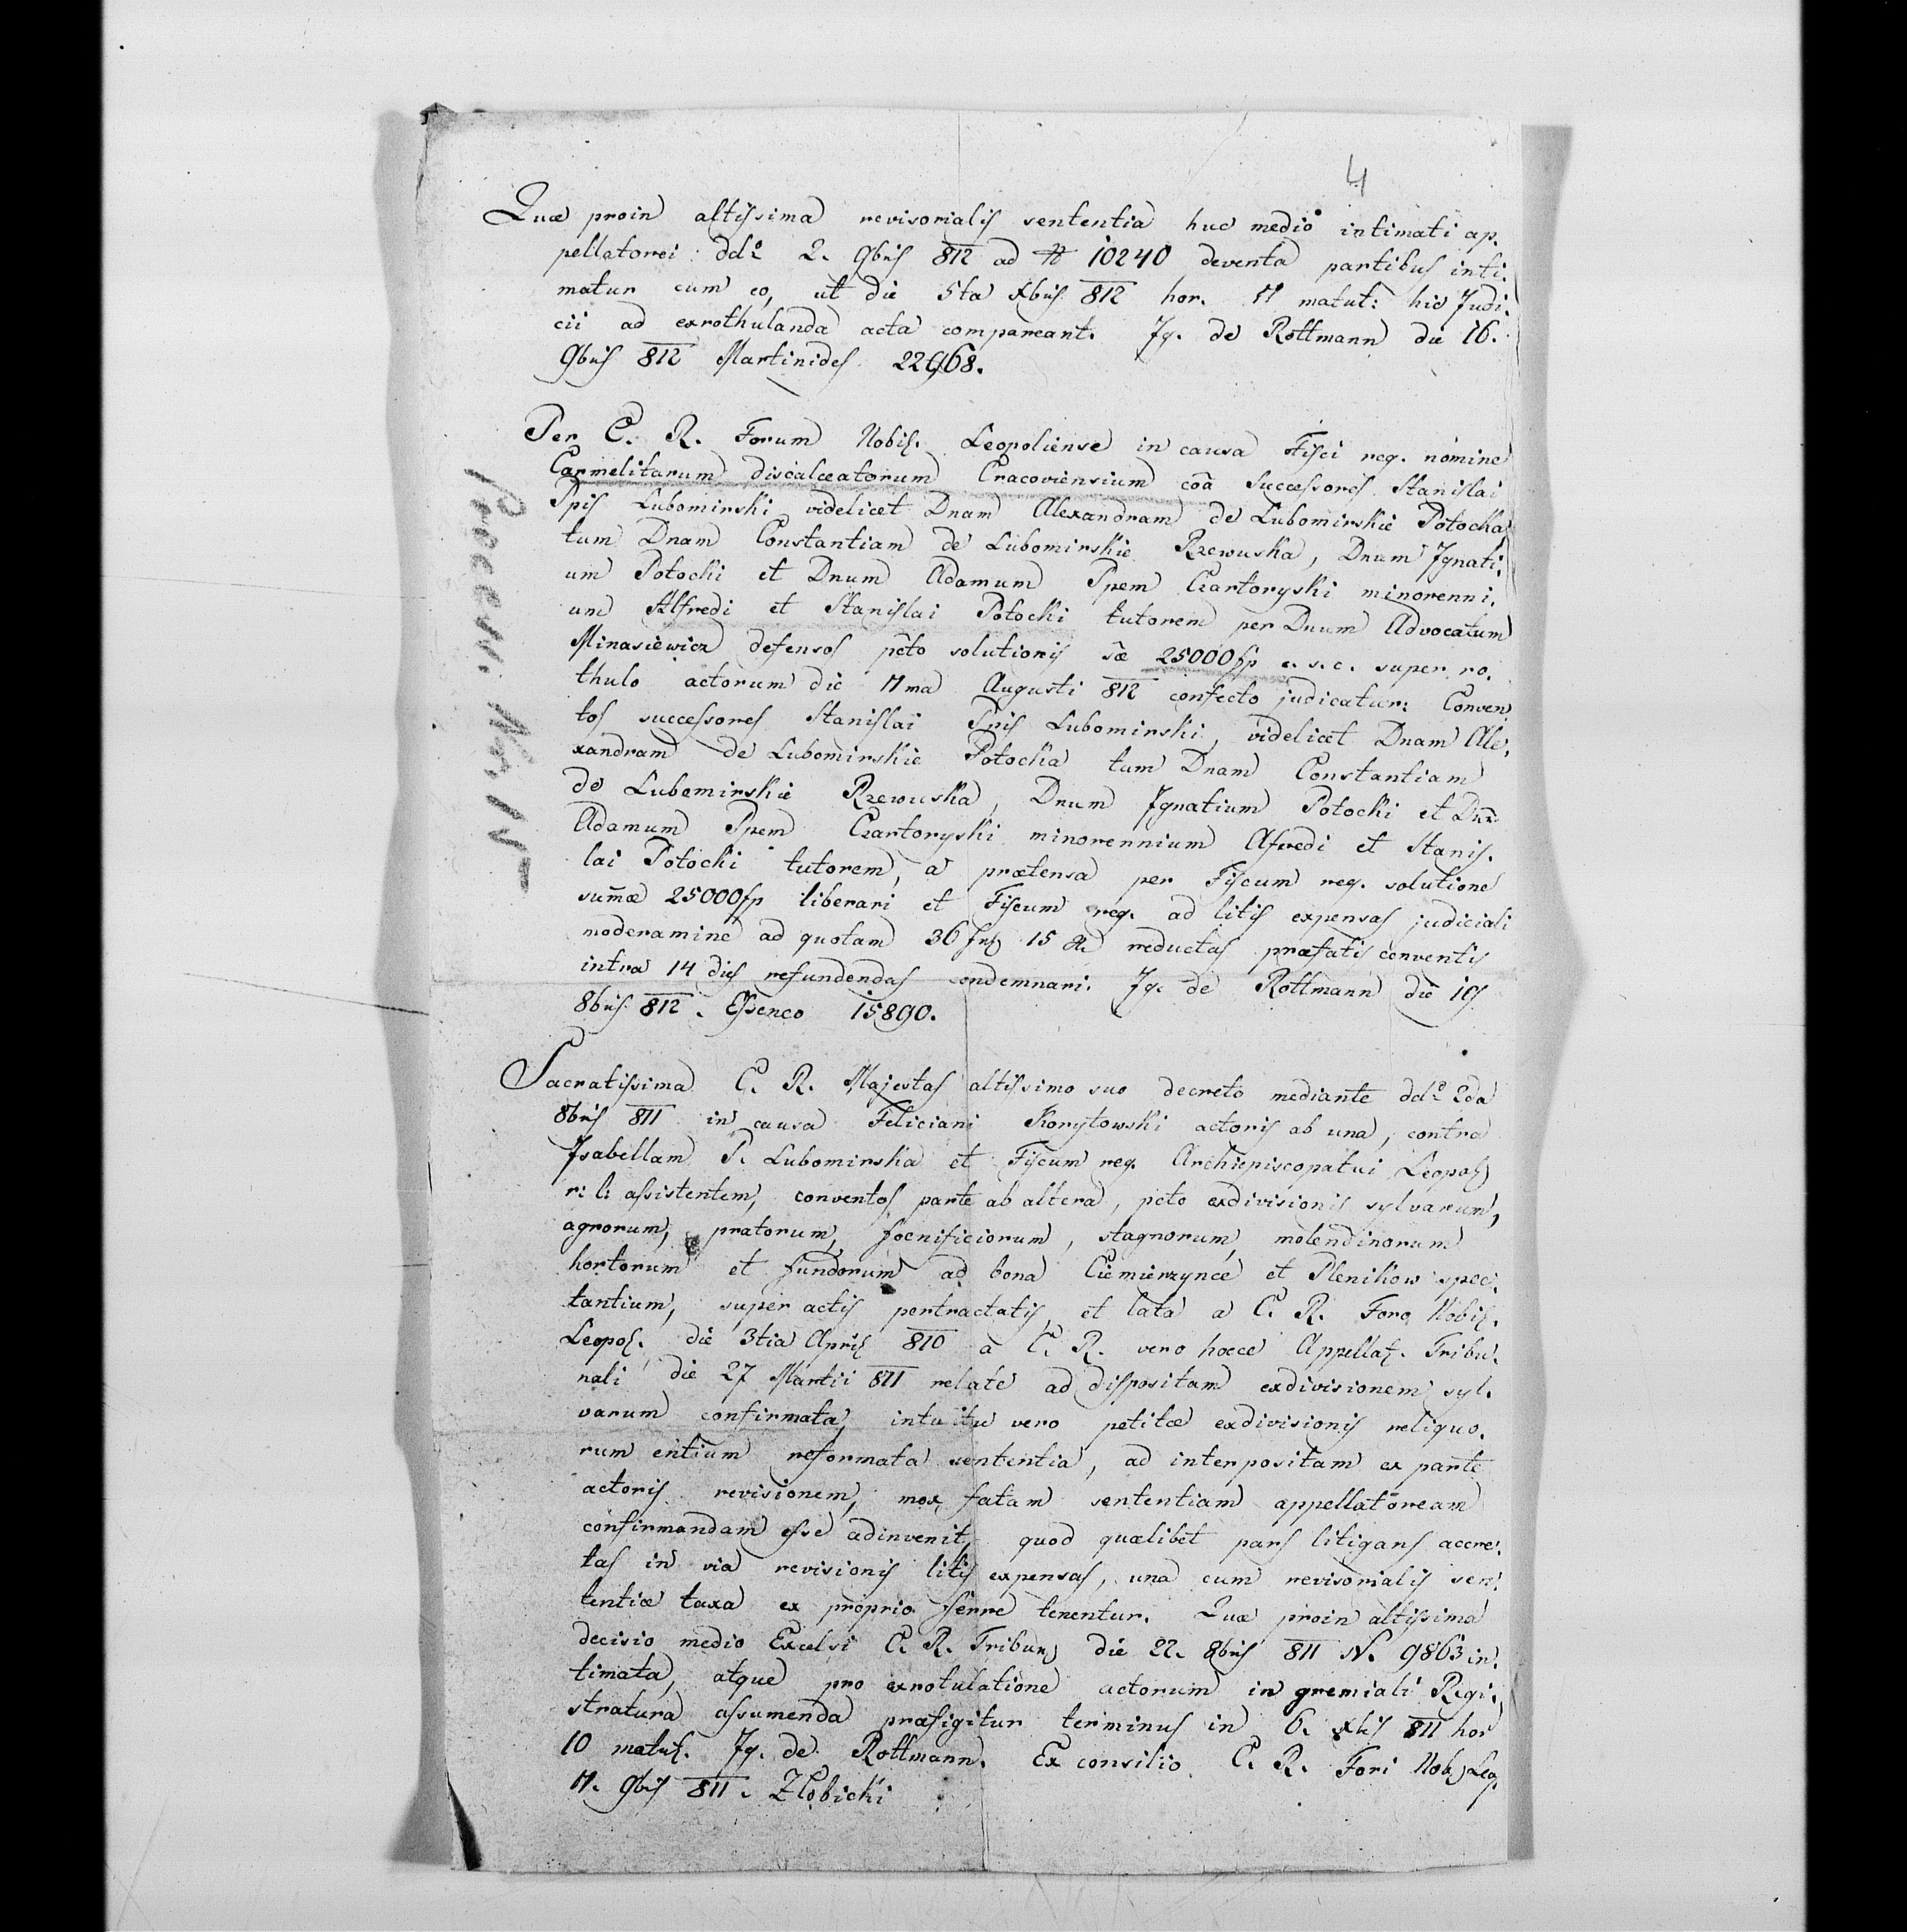 4
Quæ proin altissima revisorialis sententia huc medio intimati ap.
pellatorei ddo. 2. 9bris 812 ad N 10240 deventa partibus inti.
matur cum eo, ut die 5ta Xbris 812 hor. 11 matut: hic Judi.
cii ad exrothulanda acta compareant. Ig. de Rottmann die 16.
9bris 812 Martinides 22968.
Per C. R. Forum Nobil. Leopoliense in causa Fisci reg. nomine
Carmelitarum discalceatorum Cracoviensium coa Successores Stanislai
Ppis Lubomirski videlicet Dnam Alexandram de Lubomirskie Potocka
tum Dnam Constantiam de Lubomirskie Rzewuska, Dnum Ignati.
um Potocki et Dnum Adamum Ppem Czartoryski minorenni.
um Alfredi et Stanislai Potocki tutorem per Dnum Advocatum
Minasiewicz defensos pcto solutionis sæ 25000 fp c. s. c. super ro.
thulo actorum die 11ma Augusti 812 confecto judicatur: Conven
tos successores Stanislai Ppis Lubomirski, videlicet Dnam Ale.
xandram de Lubomirskie Potocka tum Dnam Constantiam
de Lubomirskie Rzewuska, Dnum Ignatium Potocki et Dnu
Adamum Ppem Czartoryski minorennium Afredi et Stanis.
lai Potocki tutorem, a prætensa per Fiscum reg. solutione
sumæ 25000 fp liberari et Fiscum reg. ad litis expensas judiciali
moderamine ad quotam 36 fr 15 xr reductas præfatis conventis
intra 14 dies refundendas condemnari. Ig. de Rottmann die 19
8bris 812. Essenco 15890.
Sacratissima C. R. Majestas altissimo suo decreto mediante ddo. 2da
8bris 811 in causa Feliciani Korytowski actoris ab una, contra
Isabellam P. Lubomirska et Fiscum reg. Archiepiscopatui Leopol
r: l: assistentem, conventos parte ab altera, pcto exdivisionis sylvarum,
agrorum, pratorum, foenificiorum, stagnorum, molendinorum
hortorum et fundorum ad bona Ciemierzynce et Plenikow spec.
tantium, super actis pertractatis, et lata a C. R. Foro Nobil.
Leopol. die 3tia April 810 a C. R. vero hocce Appellat. Tribu.
nali die 27 Martii 811 relate ad dispositam exdivisionem syl.
varum confirmata, intuitu vero petitæ exdivisionis reliquo.
rum entium reformata sententia, ad interpositam ex parte
actoris revisionem, mox fatam sententiam appellatoream
confirmandam esse adinvenit, quod quælibet pars litigans accre.
tas in via revisionis litis expensas, una cum revisorialis sen.
tentiæ taxa ex proprio ferre tenentur. Quæ proin altissima
decisio medio Excelsi C. R. Tribun die 22. 8bris 811 N. 9863 in.
timata, atque pro exrotulatione actorum in gremiali Regi.
stratura assumenda præfigitur terminus in 6. Xbris 811 hor
10 matut. Ig. de Rottmann. Ex consilio C. R. Fori Nob. Leop
11. 9bris 811. Zlobicki